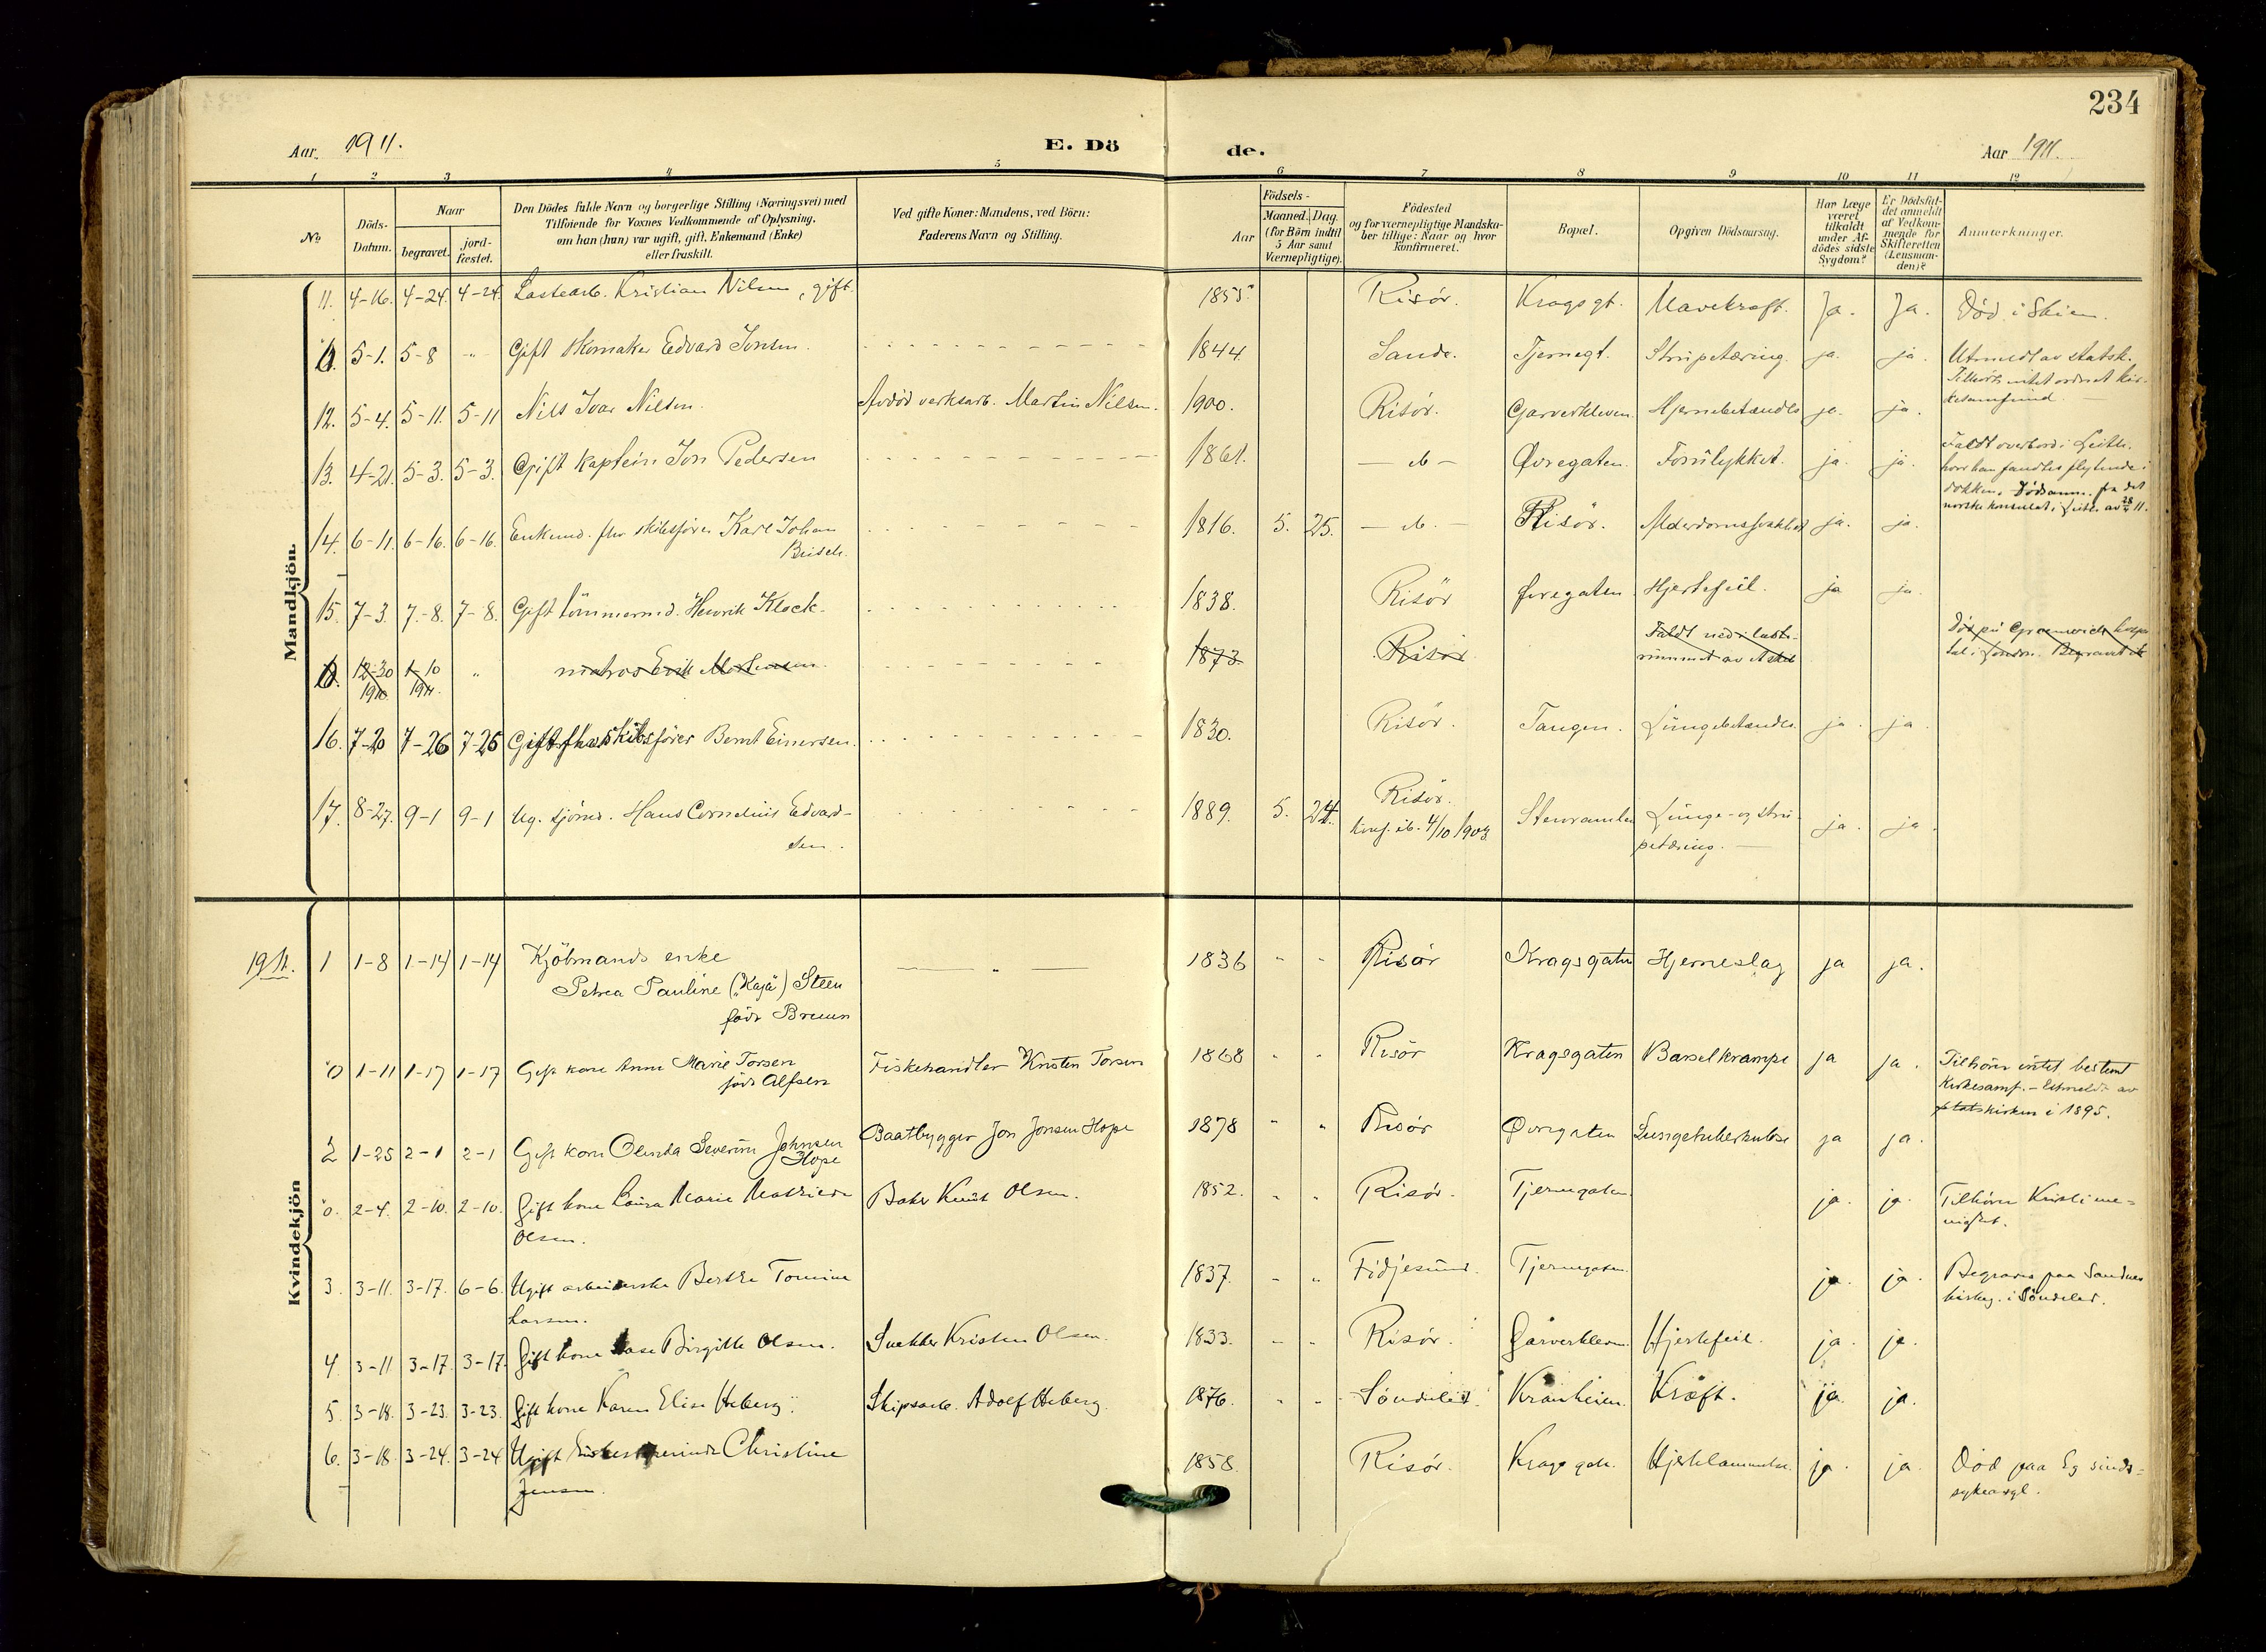 234
Aar. 1911.
E. Dö
de.
Aar 1911.
1 2 3 4 5 6 7 8 9 10 11 12
No
Döds-
Datum.
Naar
begravet.
jord-
fæstet.
Den Dödes fulde Navn og borgerlige Stilling (Næringsvei) med
Tilföiende for Voxnes Vedkommende af Oplysning,
om han (hun) var ugift, gift, Enkemand (Enke)
eller fraskilt.
Ved gifte Koner: Mandens, ved Börn:
Faderens Navn og Stilling.
Födsels-
Aar
Maaned. Dag.
(for Börn indtil
5 Aar samt
Værnepligtige).
Födested
og for værnepligtige Mandska-
ber tillige: Naar og hvor
konfirmeret.
Bopæl.
Opgiven Dödsaarsag.
Har Læge
været
tilkaldt
under Af-
dödes sidste
Sygdom?
Er Dödsfal-
det anmeldt
af Vedkom-
mende for
Skifteretten
(Lensman-
den)?
Anmærkninger.
Mandkjön.
11. 4-16. 4-24. 4-24. Lastearb. Kristian Nilsen, gift 1855 Risör. Kragsgt. Mavekræft. Ja. Ja. Död i Skien.
0. 5-1. 5-8 " Gift skomaker Edvard Jonsen. 1844. Sande. Tjernegt. Strupetæring. ja. ja. Utmeldt av statsk.
Tilhörte intet ordnet kir-
kesamfund.
12. 5-4. 5-11. 5-11 Nils Ivar Nilsen. Avdöd verksarb. Martin Nilsen. 1900. Risör. Garverkleven. Hjernebetændls ja. ja.
13. 4-21. 5-3. 5-3. Gift kaptein Jon Pedersen 1861. - do - Övregaten. Forulykket. ja. ja. Faldt overbord i Leith.
hvor han fandtes flytende i
dokken. Dödsanm. fra det
norske konsulat i Leith av 28/4 11.
14. 6-11. 6-16. 6-16. Enkemd. fhv. skibsförer Karl Johan
Brisch. 1816. 5. 25. - do - Risör. Alderdomssvakhet ja. ja.
15. 7-3. 7-8. 7-8. Gift tömmermd. Henrik Klock. 1838. Risör Övregaten Hjertefeil. ja ja.
0. 12-30 1-10 " matros Erik Mortensen 1873 Risör Faldt ned i laste-
1910 1911. rummet av et skib
Död på Greenwich hospi-
tal i London. Begravet ib
16. 7-20 7-26 7-26 Gift fhv. skibsförer Bernt Einersen. 1830. Risör. Tangen. Lungebetændls. ja. ja.
17. 8-27. 9-1 9-1 Ug. sjömd. Hans Cornelius Edvard-
sen. 1889. 5. 24. Risör.
Konf. ib. 4/10 1903 Stenramlen Lunge- og stru-
petæring. ja. ja.
Kvindekjön
1911. 1 1-8 1-14 1-14 Kjöbmands enke
Petrea Pauline ("Kaja") Steen
födt Bruun 1836 " " Risör Kragsgaten Hjerneslag ja ja.
0 1-11 1-17 1-17 Gift kone Anne Marie Torsen
födt Alfsen Fiskehandler Knsten Torsen 1868 " " Risör Kragsgaten Barselkrampe ja ja. Tilhörer intet bestemt
Kirkesamf. - Utmeldt av
statskirken i 1895.
2 1-25 2-1 2-1 Gift kone Olenda Severine Johnsen
Hope Baatbygger Jon Jonsen Hope 1878 " " Risör Övregaten Lungetuberkulose ja ja.
0. 2-4. 2-10. 2-10. Gift kone Laura Marie Mathilde
Olsen. Baker Knut Olsen. 1852. " " Risör. Tjernegaten. ja. ja. Tilhörer Kristi me-
nighet.
3. 3-11. 3-17. 6-6. Ugift arbeiderske Berthe Tomine
Larsen. 1837. " " Fidjesund. Tjernegaten. ja. ja. Begraves paa Sandnes
kirkeg. i Söndeled.
4. 3-11 3-17. 3-17. Gift kone Aase Birgitte Olsen. Snekker Kristen Olsen. 1833. " " Risör. Garverkleven. Hjertefeil. ja. ja.
5. 3-18. 3-23. 3-23. Gift kone Karen Elise Heberg. Skipsarb. Adolf Heberg. 1876. " " Söndeled. Kranheien. Kræft. ja. ja.
6. 3-18. 3-24. 3-24 Ugift Christine
Jensen. 1858. Risör. Kragsgate. Hjertelammelse. ja. ja. Död paa Eg sinds-
sykeasyl.